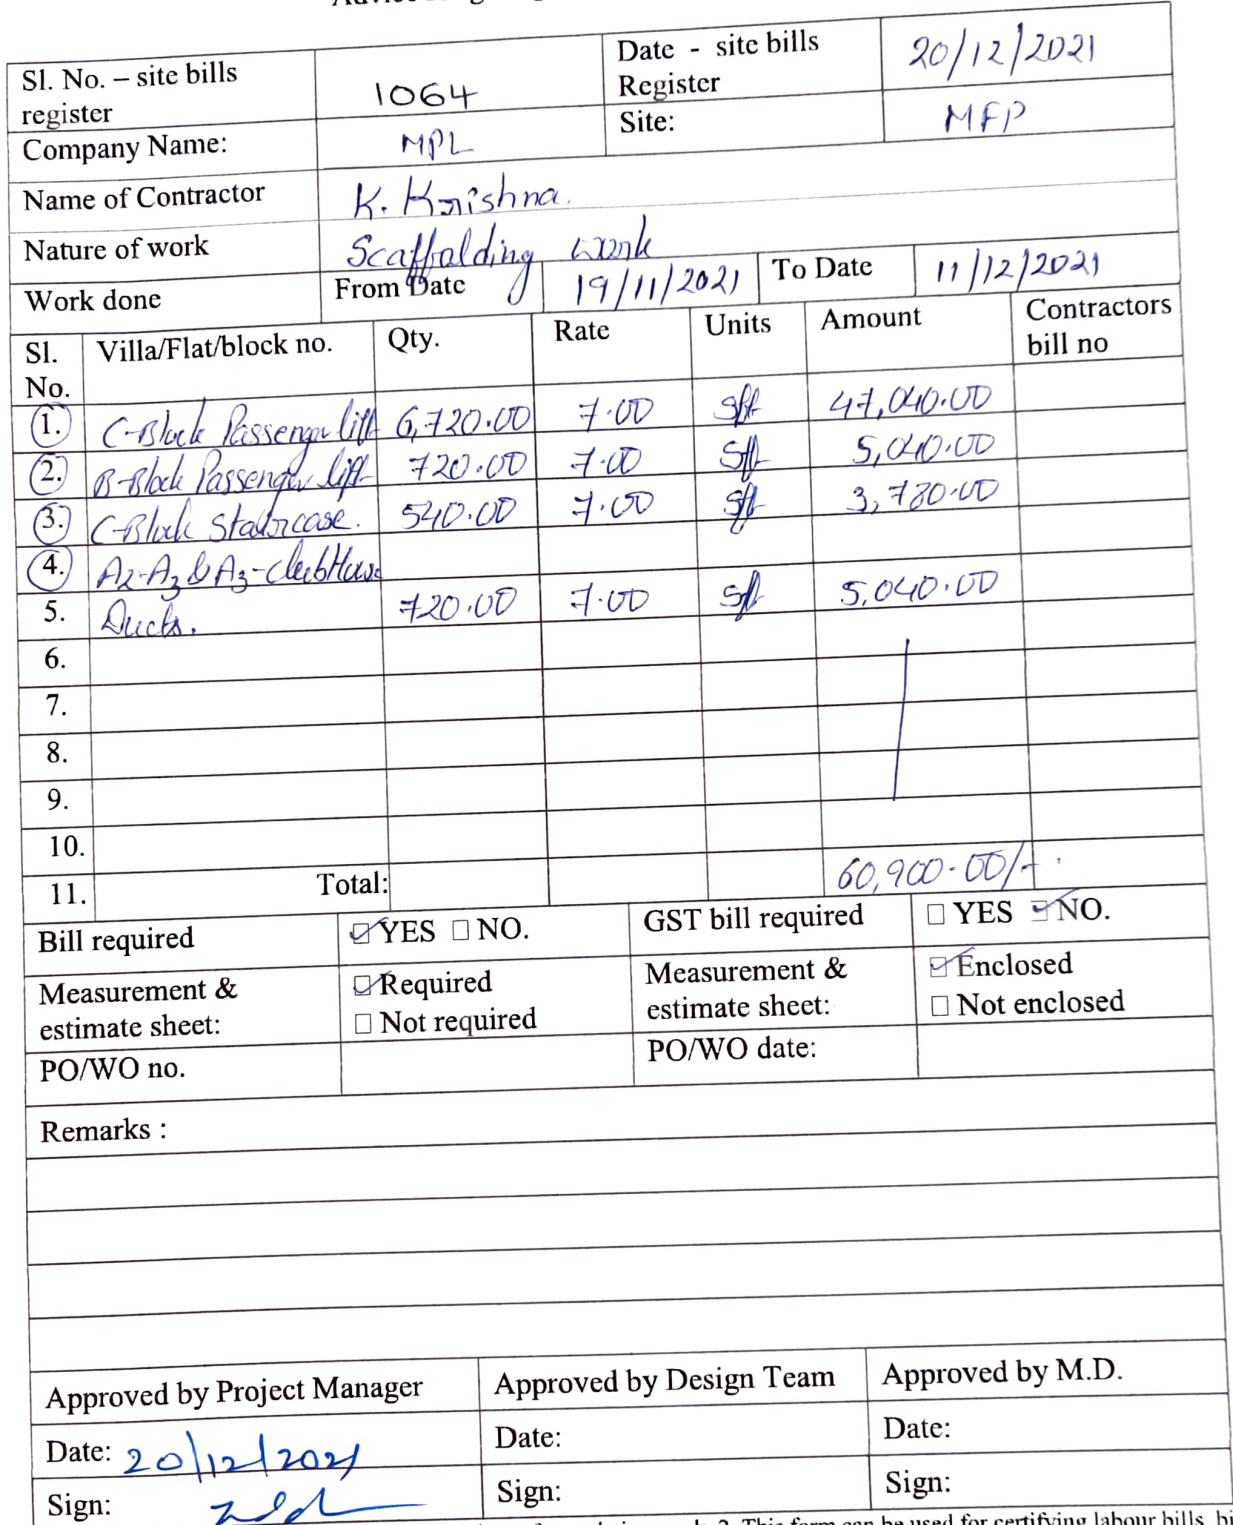 Sl. No. – site bills register 1064 Date - site bills Register 20/12/2021
Company Name: MPL Site: MFP
Name of Contractor K. Krishna.
Nature of work Scaffolding work
Work done From Date 19/11/2021 To Date 11/12/2021
Sl. No. Villa/Flat/block no. Qty. Rate Units Amount Contractors bill no
1. C-Block Passenger lift 6,720.00 7.00 sft 47,040.00
2. B-Block Passenger lift 720.00 7.00 sft 5,040.00
3. C-Block Staircase. 540.00 7.00 sft 3,780.00
4. A2-A3 & A3-ClubHouse
5. Ducts. 720.00 7.00 sft 5,040.00
6.
7.
8.
9.
10.
11. Total: 60,900.00/-
Bill required ☑ YES ☐ NO. GST bill required ☐ YES ☑ NO.
Measurement & estimate sheet: ☑ Required ☐ Not required Measurement & estimate sheet: ☑ Enclosed ☐ Not enclosed
PO/WO no. PO/WO date:
Remarks :
Approved by Project Manager Approved by Design Team Approved by M.D.
Date: 20/12/2021 Date: Date:
Sign: Sign: Sign:
2. This form can be used for certifying labour bills, bi